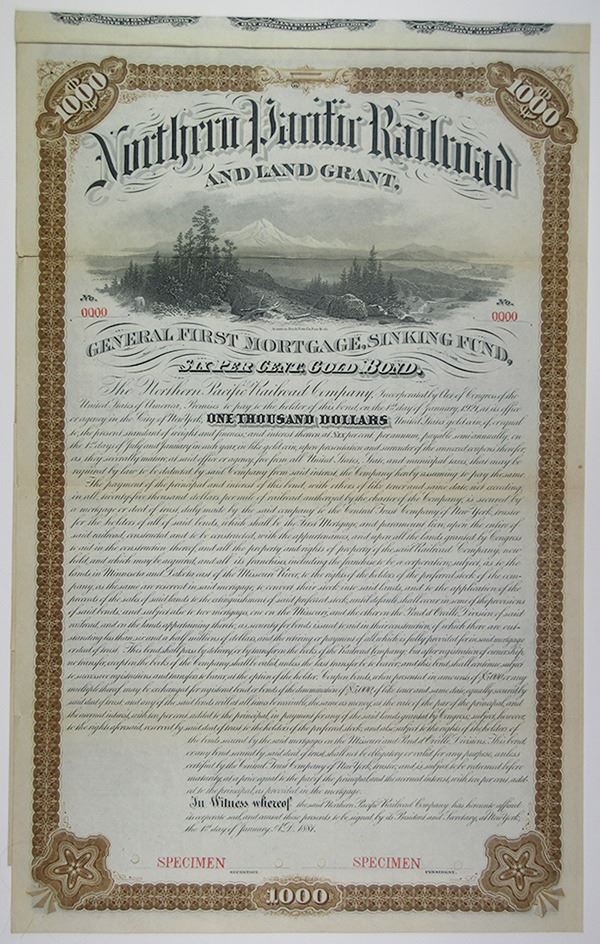 1000
1000
Northern Pacific Railroad
AND LAND GRANT,
No.
0000
No.
0000
GENERAL FIRST MORTGAGE, SINKING FUND,
SIX PER CENT. GOLD BOND.
The Northern Pacific Railroad Company, Incorporated by Act of Congress of the
United States of America, Promises to pay to the holder of this bond, on the 1st day of January, 1921, at its office
or agency in the City of New York, ONE THOUSAND DOLLARS United States gold coin, if equal
to, the present standard of weight and fineness, and interest thereon at six per cent. per annum, payable semi-annually, on
the 1st days of July and January in each year, in like gold coin, upon presentation and surrender of the annexed coupons therefor,
as they severally mature, at said office or agency, free from all United States, State, and municipal taxes, that may be
required by law to be deducted by said Company from said interest, the Company hereby assuming to pay the same.
The payment of the principal and interest of this bond, with others of like tenor and same date, not exceeding
in all, twenty-five thousand dollars per mile of railroad authorized by the charter of the Company, is secured by
a mortgage or deed of trust, duly made by the said company to the Central Trust Company of New York, trustee
for the holders of all of said bonds, which shall be the First Mortgage, and paramount lien, upon the entire of
said railroad, constructed and to be constructed, with the appurtenances, and upon all the lands granted by Congress
to aid in the construction thereof, and all the property and rights of property of the said Railroad Company, now
held, and which may be acquired, and all its franchises, including the franchise to be a corporation; subject, as to the
lands in Minnesota and Dakota east of the Missouri River, to the rights of the holders of the preferred stock of the com-
pany, as the same are reserved in said mortgage, to convert their stock into said lands, and to the application of the
proceeds of the sales of said lands to the extinguishment of said preferred stock, until default shall occur in some of the provisions
of said bonds, and subject also to two mortgages, one on the Missouri, and the other on the Pend d'Oreille, Division of said
railroad, and on the lands appertaining thereto, as security for bonds issued to aid in its construction, of which there are out-
standing less than six and a half millions of dollars, and the retiring or payment of all which is fully provided for in said mortgage
or deed of trust. This bond shall pass by delivery, or by transfer on the books of the Railroad Company; but after registration of ownership,
no transfer, except on the books of the Company, shall be valid, unless the last transfer be to bearer, and this bond, shall continue, subject
to successive registrations and transfers to bearer, at the option of the holder. Coupon bonds, when presented in amounts of $5000, or any
multiple thereof, may be exchanged for registered bond or bonds of the denomination of $5000, of like tenor and same date, equally secured by
said deed of trust, and any of the said bonds will at all times be receivable, the same as money, at the rate of the par of the principal, and
the accrued interest, with ten per cent. added to the principal, in payment for any of the said lands granted by Congress, subject, however,
to the rights aforesaid, reserved by said deed of trust to the holders of the preferred stock, and also subject to the rights of the holders of
the bonds secured by the said mortgages on the Missouri and Pend d'Oreille Divisions. This bond,
or any bond secured by said deed of trust, shall not be obligatory or valid for any purpose, unless
certified by the Central Trust Company of New York, trustee; and is subject to be redeemed before
maturity, at a price equal to the par of the principal and the accrued interest, with ten per cent. add-
ed to the principal, as provided in the mortgage.
In Witness whereof, the said Northern Pacific Railroad Company has hereunto affixed
its corporate seal, and caused these presents to be signed by its President and Secretary, at New York,
the 1st day of January, A.D. 1881.
SPECIMEN
SPECIMEN
SECRETARY.
PRESIDENT.
1000